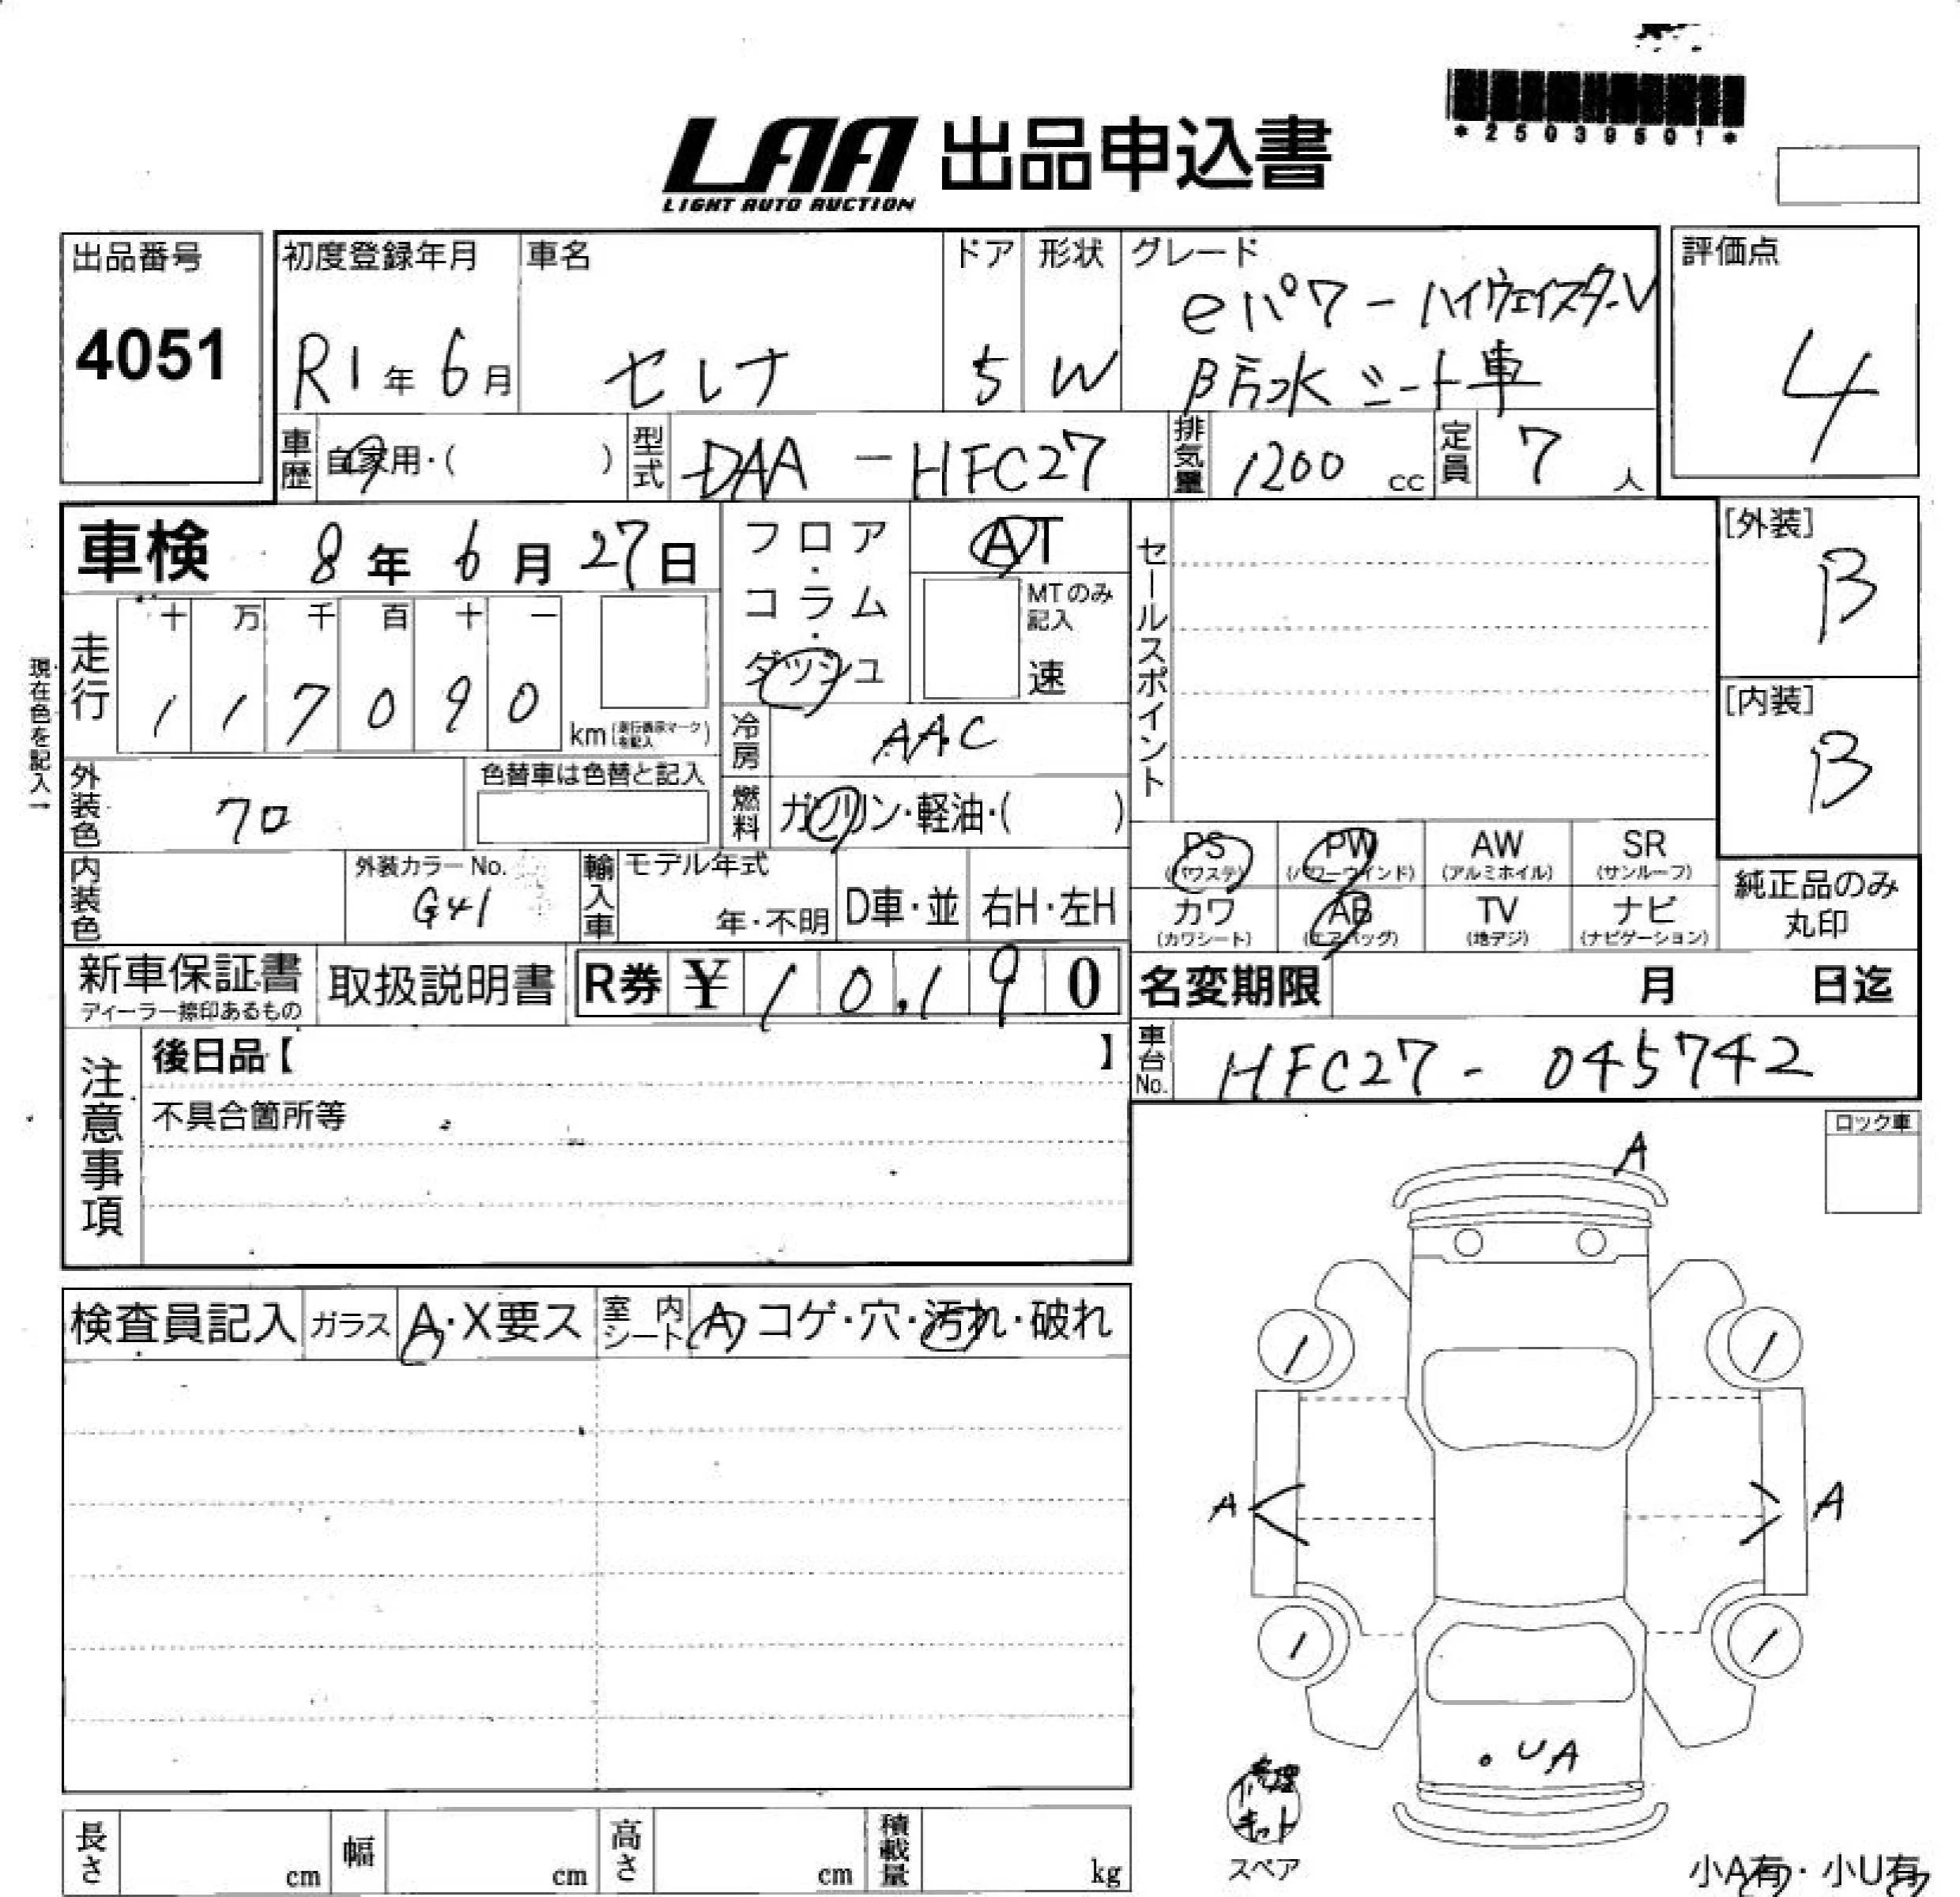 *25039501*
LAA 出品申込書
LIGHT AUTO AUCTION
出品番号 初度登録年月 車名 ドア 形状 グレード 評価点
4051 R1年 6月 セレナ 5 W eパワーハイウェイスターV 4
防水シート車
車歴 自家用・( ) 型式 DAA-HFC27 排気量 1200 cc 定員 7 人
車検 8年 6月 27日 フロア・コラム・ダッシュ AT セールスポイント [外装] B
MTのみ記入 速
走行 十 万 千 百 十 一
1 1 7 0 9 0 km
現在色を記入→
冷房 AAC [内装] B
外装色 クロ 色替車は色替と記入 燃料 ガソリン・軽油・( )
PS (パワステ) PW (パワーウインド) AW (アルミホイル) SR (サンルーフ)
内装色 外装カラーNo. G41 輸入車 モデル年式 年・不明 D車・並 右H・左H
カワ (カワシート) AB (エアバッグ) TV (地デジ) ナビ (ナビゲーション) 純正品のみ丸印
新車保証書 取扱説明書 R券 ¥ 10,190 名変期限 月 日迄
ディーラー捺印あるもの
注意事項 後日品【 】 車台No. HFC27-045742
不具合箇所等
ロック車
A
検査員記入 ガラス A・X要ス 室内シート A コゲ・穴・汚れ・破れ
/ /
A A
/ /
・UA
修理キット
スペア
長さ cm 幅 cm 高さ cm 積載量 kg
小A有・小U有